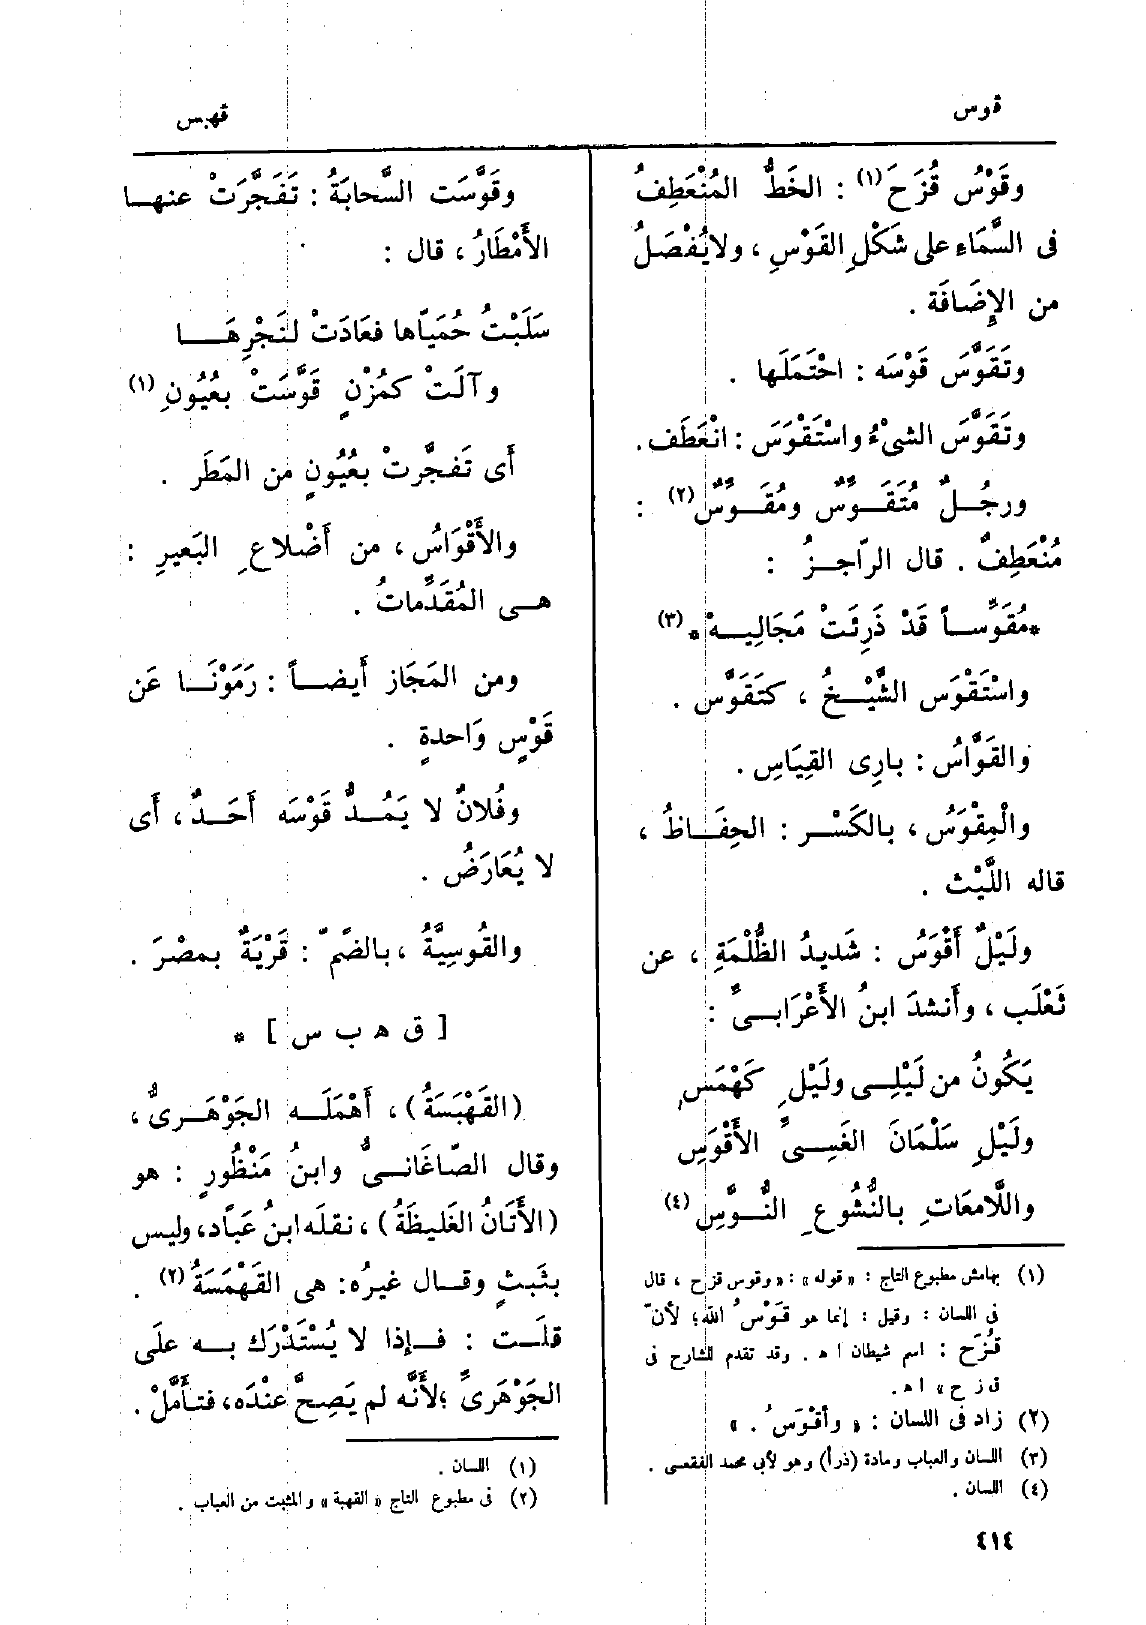 قوس
قهبس
وقَوْسُ قُزَحَ(١) : الخَطُّ المُنْعَطِفُ
فى السَّمَاءِ على شَكْلِ القَوْسِ ، ولايُفْصَلُ
من الإِضَافَة .
وتَقَوَّسَ قَوْسَه : احْتَمَلَها .
وتَقَوَّسَ الشىْءُ واسْتَقْوَسَ : انْعَطَف .
ورجُــلٌ مُتَقَــوِّسٌ ومُقَــوِّسٌ(٢) :
مُنْعَطِفٌ . قال الرّاجــزُ :
*مُقَوِّســاً قَدْ ذَرِئَتْ مَجَالِيــهْ*(٣)
واسْتَقْوَس الشَّيْــخُ ، كتَقَوَّس .
والقَوَّاسُ : بارِى القِيَاسِ .
والْمِقْوَسُ ، بالكَسْــر : الحِفَــاظُ ،
قاله اللَّيْث .
ولَيْلٌ أَقْوَسُ : شَديدُ الظُّلْمَةِ ، عن
ثَعْلَب ، وأَنشدَ ابنُ الأَعْرَابــىِّ :
يَكُونُ من لَيْلِــى ولَيْلِ كَهْمَسِ
ولَيْلِ سَلْمَانَ الغَسِــىِّ الأَقْوَسِ
واللَّامعَاتِ بالنُّشُوعِ النُّــوَّسِ(٤)
(١) بهامش مطبوع التاج : « قوله » : « وقوس قزح ، قال
فى اللسان : وقيل : إنما هو قَوْسُ الله؛ لأنّ
قُزَح : اسم شيطان ا ه . وقد تقدم للشارح فى
ق ز ح » ا ه .
(٢) زاد فى اللسان : « وأقوَسُ . »
(٣) اللسان والعباب ومادة (ذرأ) وهو لأبى محمد الفقعسى .
(٤) اللسان .
وقَوَّسَت السَّحابَةُ : تَفَجَّرَتْ عنهــا
الأَمْطَارُ ، قال :
سَلَبْتُ حُمَيّاها فعَادَتْ لنَجْرِهَــا
وآلَتْ كمُزْنٍ قَوَّسَتْ بعُيُونِ(١)
أَى تَفجَّرتْ بعُيُونٍ من المَطَر .
والأَقْوَاسُ ، من أَضْلاعِ البَعيرِ :
هــى المُقَدَّمَاتُ .
ومن المَجَاز أَيضــاً : رَمَوْنَــا عَن
قَوْسٍ وَاحدةٍ .
وفُلانٌ لا يَمُــدُّ قَوْسَه أَحَــدٌ ، أَى
لا يُعَارَضُ .
والقُوسِيَّةُ ، بالضَّمّ : قَرْيَةٌ بمصْرَ .
[ ق ه ب س ] *
(القَهْبَسَةُ) ، أَهْمَلَــه الجَوْهَــرىُّ ،
وقال الصّاغَانــىُّ وابنُ مَنْظُورٍ : هو
(الأَتَانُ الغَلِيظَةُ) ، نقلَه ابنُ عَبّاد، وليس
بثَبتٍ وقــال غيرُه: هى القَهْمَسَةُ(٢) .
قلَــت : فــإذا لا يُسْتَدْرَك بــه علَى
الجَوْهَرىِّ ؛لأَنَّه لم يَصِحَّ عنْدَه، فتأَمَّلْ .
(١) اللسان .
(٢) فى مطبوع التاج « القهبة » والمثبت من العباب .
٤١٤